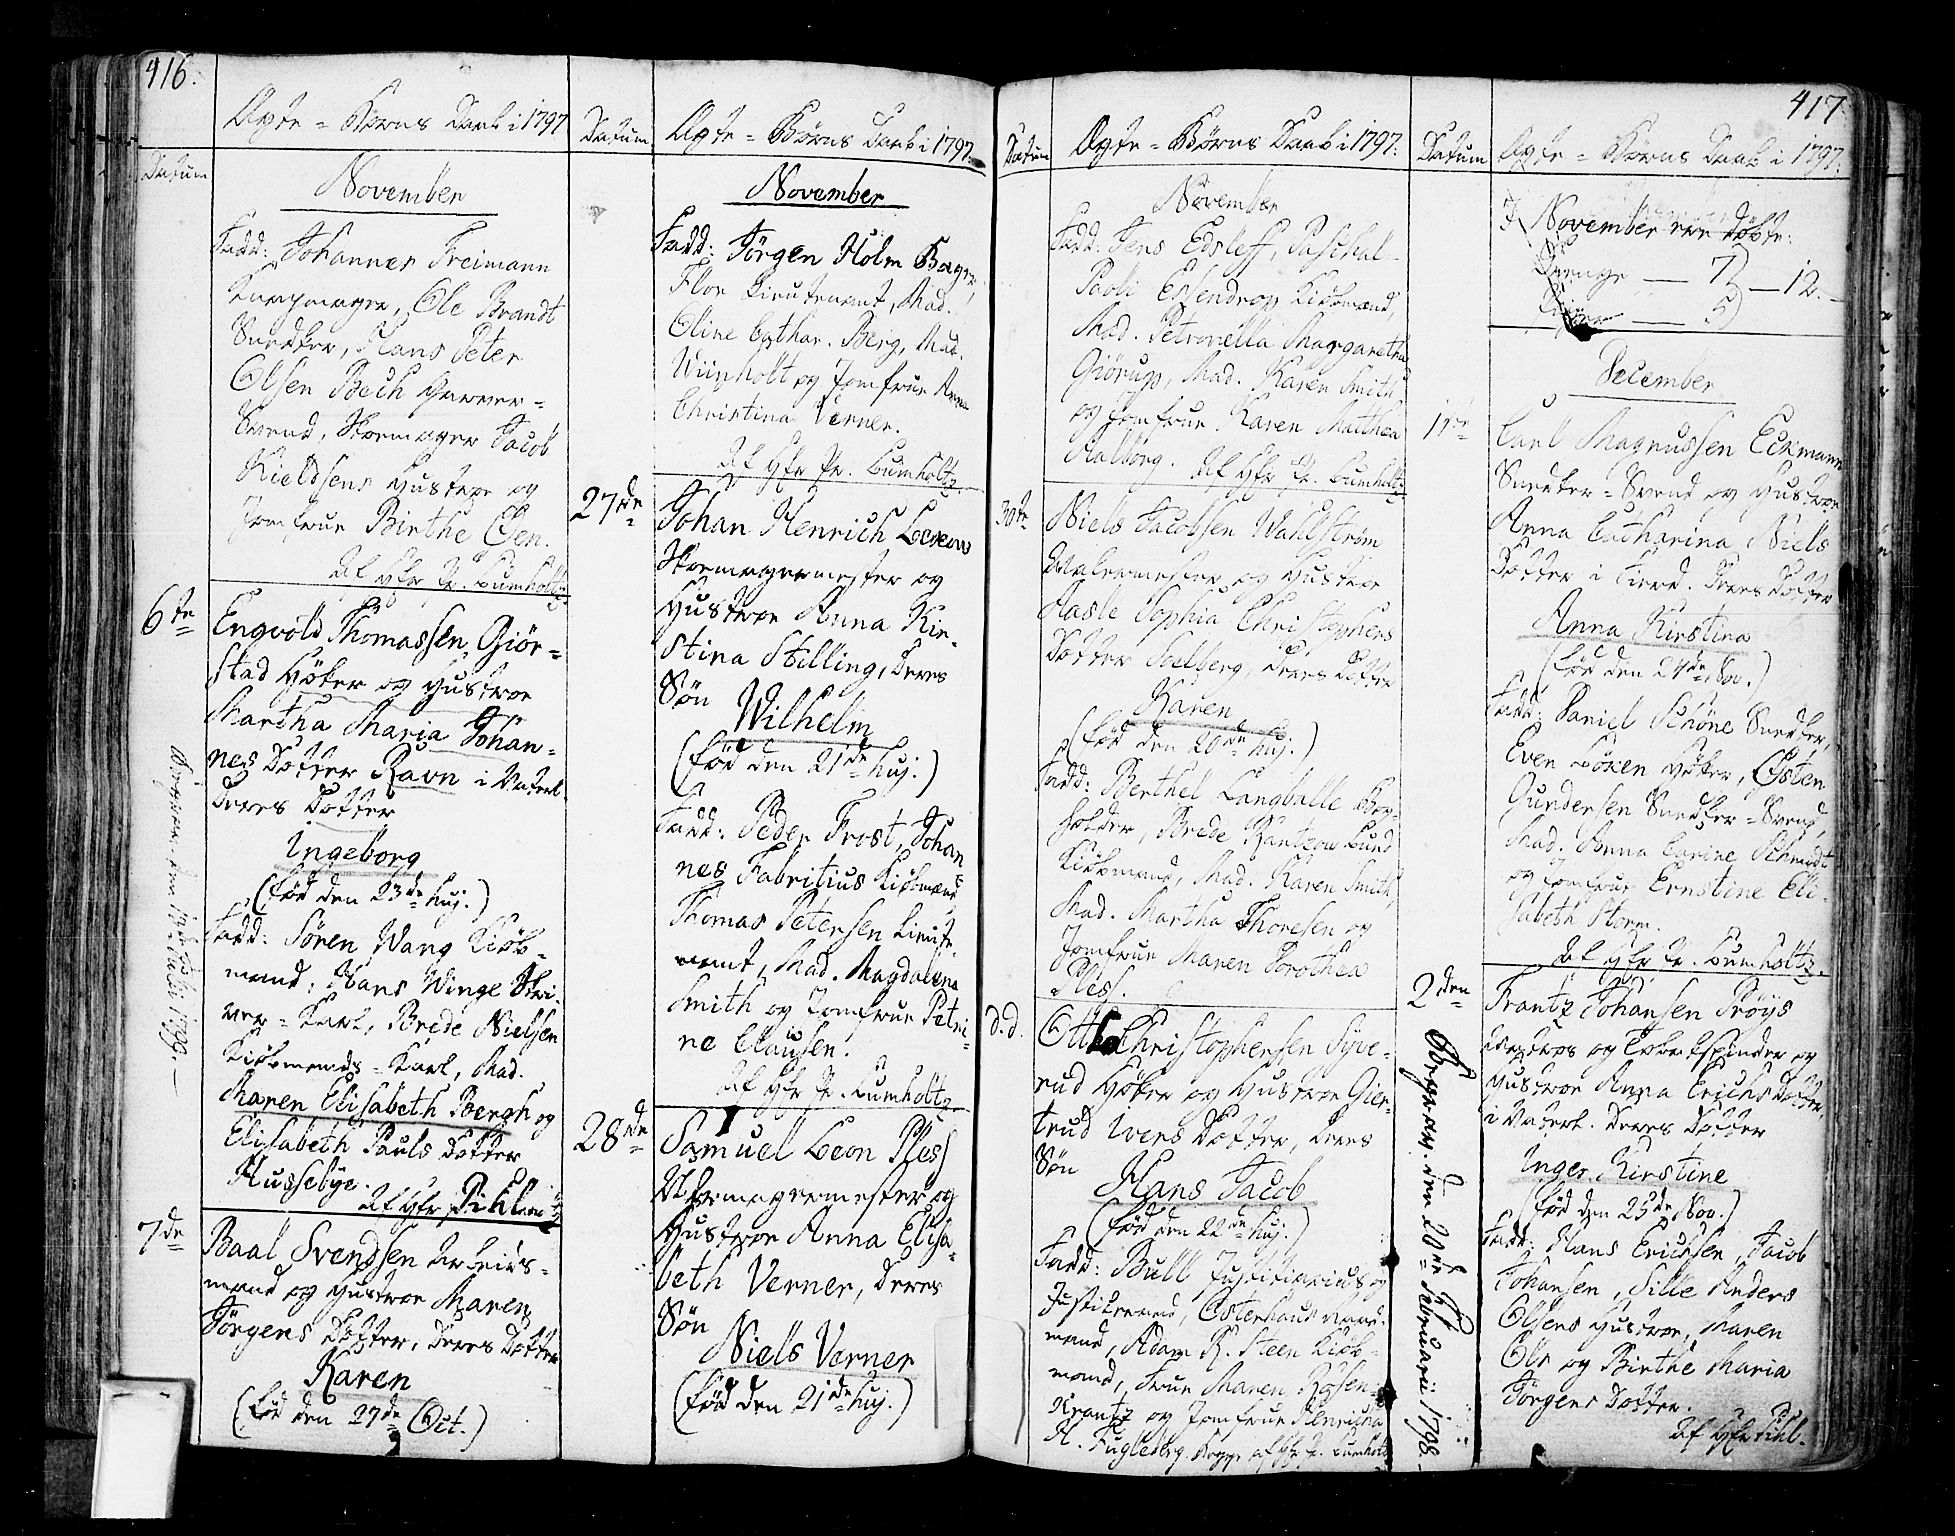 416.
Ægte = Børns Daab i 1797
Datum
November
Fadd: Johannes Freimann
Knapmager, Ole Brandt
Snedker, Hans Peter
Olsen Bech Garver =
Svend, Skomager Jacob
Kieldsens Hustroe og
Jomfrue Birthe Olsen.
Af Hr Pr. Lumholtz.
6te
Engvold Thomassen Giör =
stad Höker og Hustroe
Martha Maria Johan =
nes Dotter Ravn i Vaterl.
Deres Dotter
Ingeborg
(föd den 23de huj.)
Fadd: Sören Wang Kiöb =
mand, Hans Winge Skri
ver = Karl, Brede Nielsen
Kiöbmands = Karl, Mad.
Maren Elisabeth Bergh og
Elisabeth Pauls Dotter
Hussebye.
Af Hr Pihl
7de
Baal Svendsen Arbeids =
mand og Hustroe Maren
Jörgens Dotter, Deres Dotter
Karen
(föd den 27de Oct.)
Datum
Ægte = Børns Daab i 1797.
November
Fadd: Jörgen Holm Bager,
Flor Lieutenant, Mad.
Oline Cathar. Berg, Mad.
Wiinholt og Jomfrue Anna
Christina Verner.
Af Hr Pr. Lumholtz.
27de
Johan Henrich
Skomagermester og
Hustroe Anna Kir =
stina Stilling, Deres
Sön Wilhelm
(föd den 21de huj.)
Fadd: Peder Frost, Johan
nes Fabritius Kiöbmænd
Thomas Petersen Lieute
nant, Mad. Magdalena
Smith og Jomfrue Petri =
ne Clausen.
Af Hr Pr. Lumholtz
28de
Samuel Leon Pless
Uhrmagermester og
Hustroe Anna Elisa =
beth Verner, Deres
Sön
Niels Verner
(föd den 21de huj.)
417.
Datum
Ægte = Børns Daab i 1797.
November
Fadd: Jens Edsleff, Paschal
Paoli Essendrop Kiöbmænd,
Mad. Petronella Margaretha
Giörup, Mad. Karen Smith
og Jomfrue Karen Matthea
Aalborg. Af Hr Pr. Lumholtz
30te
Niels Jacobsen Wahlström
Malermester og Hustroe
Aasle Sophia Christophers
Dotter Soelberg, Deres Dotter
Karen
(föd den 20de huj.)
Fadd: Berthel Langballe Bog =
holder, Brede Rantzow Lund
Kiöbmand, Mad. Karen Smith,
Mad. Martha Thoresen og
Jomfrue Maren Dorothea
Pless.
d.d.
Otto Christophersen Syve =
rud Höker og Hustroe Gier =
trud Ivers Dotter, Deres
Sön Hans Jacob
(föd den 22de huj.)
Fadd: Bull Justitiarius og
Justitsraad, Osterhaus
mand, Adam R. Steen Kiöb =
mand, Frue Maren Rosen =
Krantz og Jomfrue Henricha
H. Fugleberg. af Hr Pr. Lumholtz
Datum
Ægte = Børns Daab i 1797.
I November ere döbte:
Drenge — 7
— 12. —
Piger — 5
December
1ste
Carl Magnussen Eckmann
Snedker = Svend og Hustroe
Anna Catharina Niels
Dotter i Deres Dotter
Anna Kirstina
(föd den 24de Nov.)
Fadd: Daniel Schöne Snedker,
Even Löken Höker, Östen
Gundersen Snedker = Svend,
Mad. Anna Carine Schmidt
og Jomfrue Ernstine Eli =
sabeth Storm.
Af Hr Pr. Lumholtz.
2den
Frantz Johansen Pröys
og Tobakspinder og
Hustroe Anna Erichs Dotter,
i Vaterl. Deres Dotter
Inger Kirstine
(föd den 25de Nov.)
Fadd: Hans Erichsen, Jacob
Johansen, Sille Anders
Olsens Hustroe, Maren
Ole og Birthe Maria
Jörgens Dotter.
Af Hr Pihl.
Begrav. den 20de Februarii 1798.